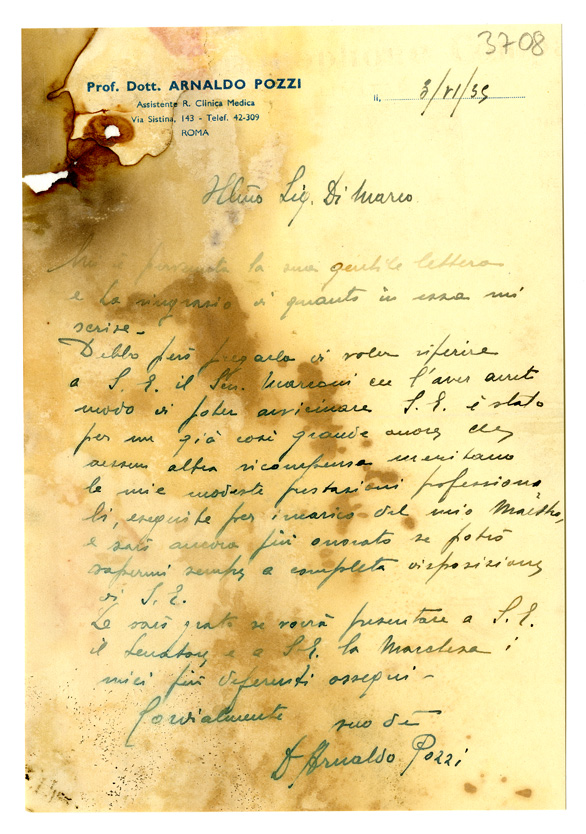 3708
Prof. Dott. ARNALDO POZZI
Assistente R. Clinica Medica
Via Sistina, 143 - Telef. 42-309
ROMA
li, 3/VI/35
Ill.mo Sig. Di Marco
Mi è pervenuta la sua gentile lettera
e la ringrazio di quanto in essa mi
scrive -
Debbo però pregarla di voler riferire
a S. E. il Sen. Marconi che l'aver avuto
modo di poter avvicinare S. E. è stato
per me già così grande onore che
nessun altra ricompensa meritano
le mie modeste prestazioni professiona
li, eseguite per incarico del mio Maestro,
e sarò ancora più onorato se potrò
sapermi sempre a completa disposizione
di S. E.
Le sarò grato se vorrà presentare a S. E.
il Senatore e a S. E. la Marchesa i
miei più deferenti ossequi -
Cordialmente suo
D. Arnaldo Pozzi